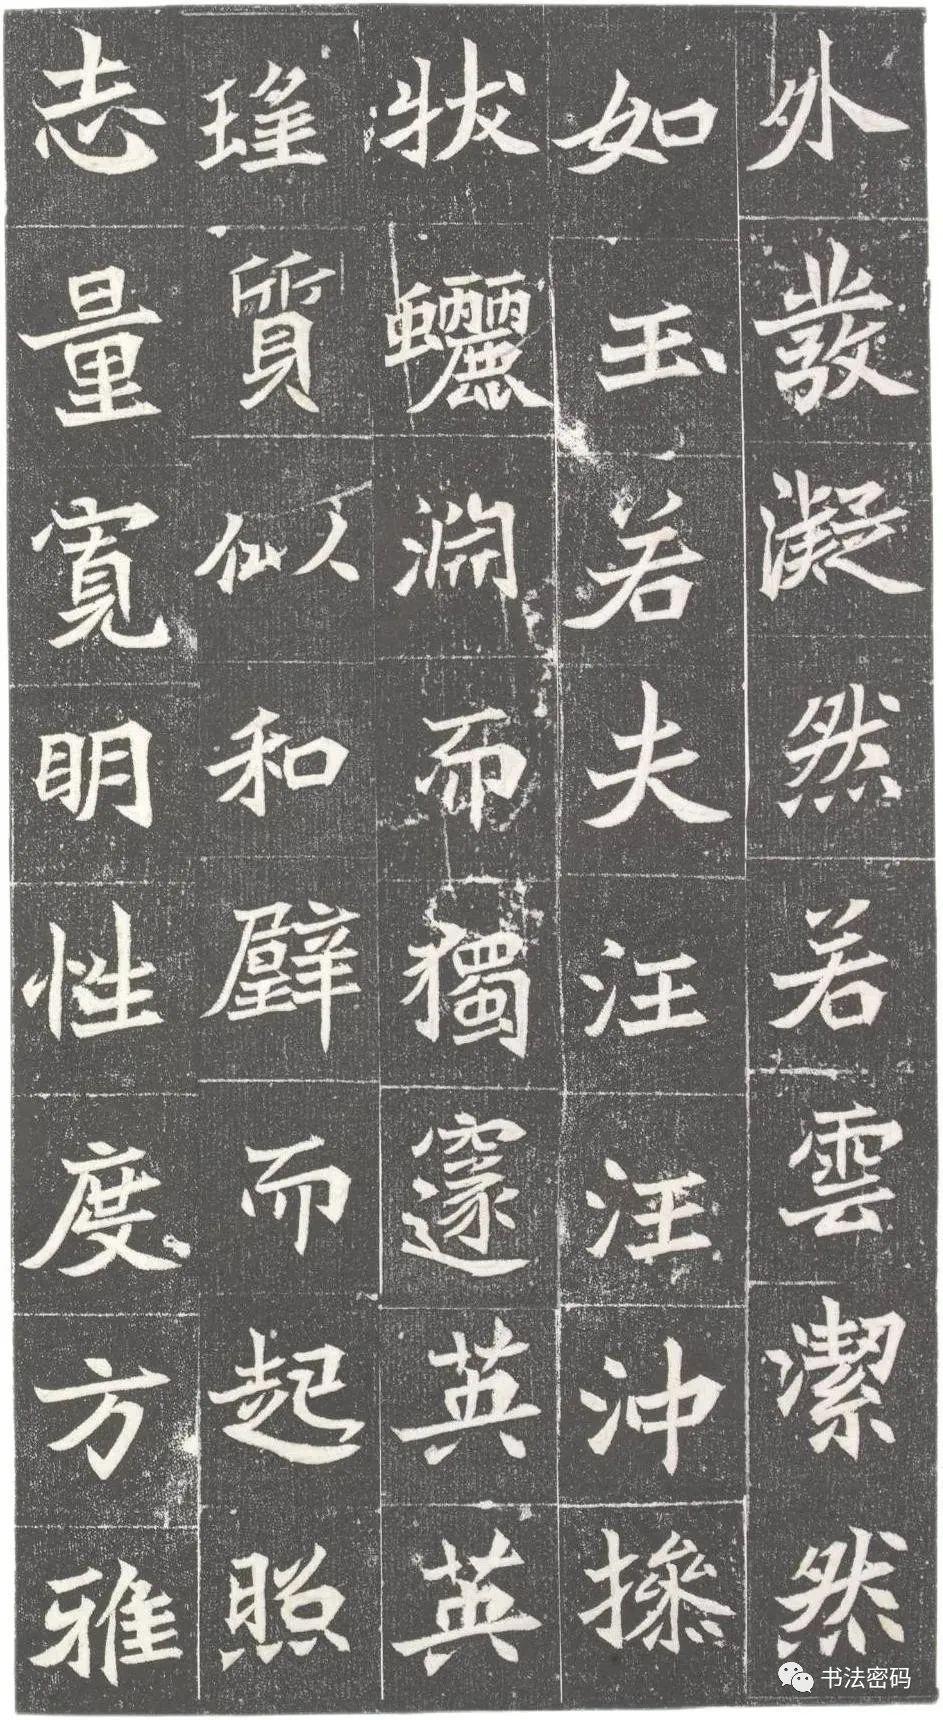 外發凝然若雲潔然
如玉若夫汪汪沖操
狀驪淵而獨邃英英
瑾質似和璧而起照
志量寬明性度方雅
书法密码